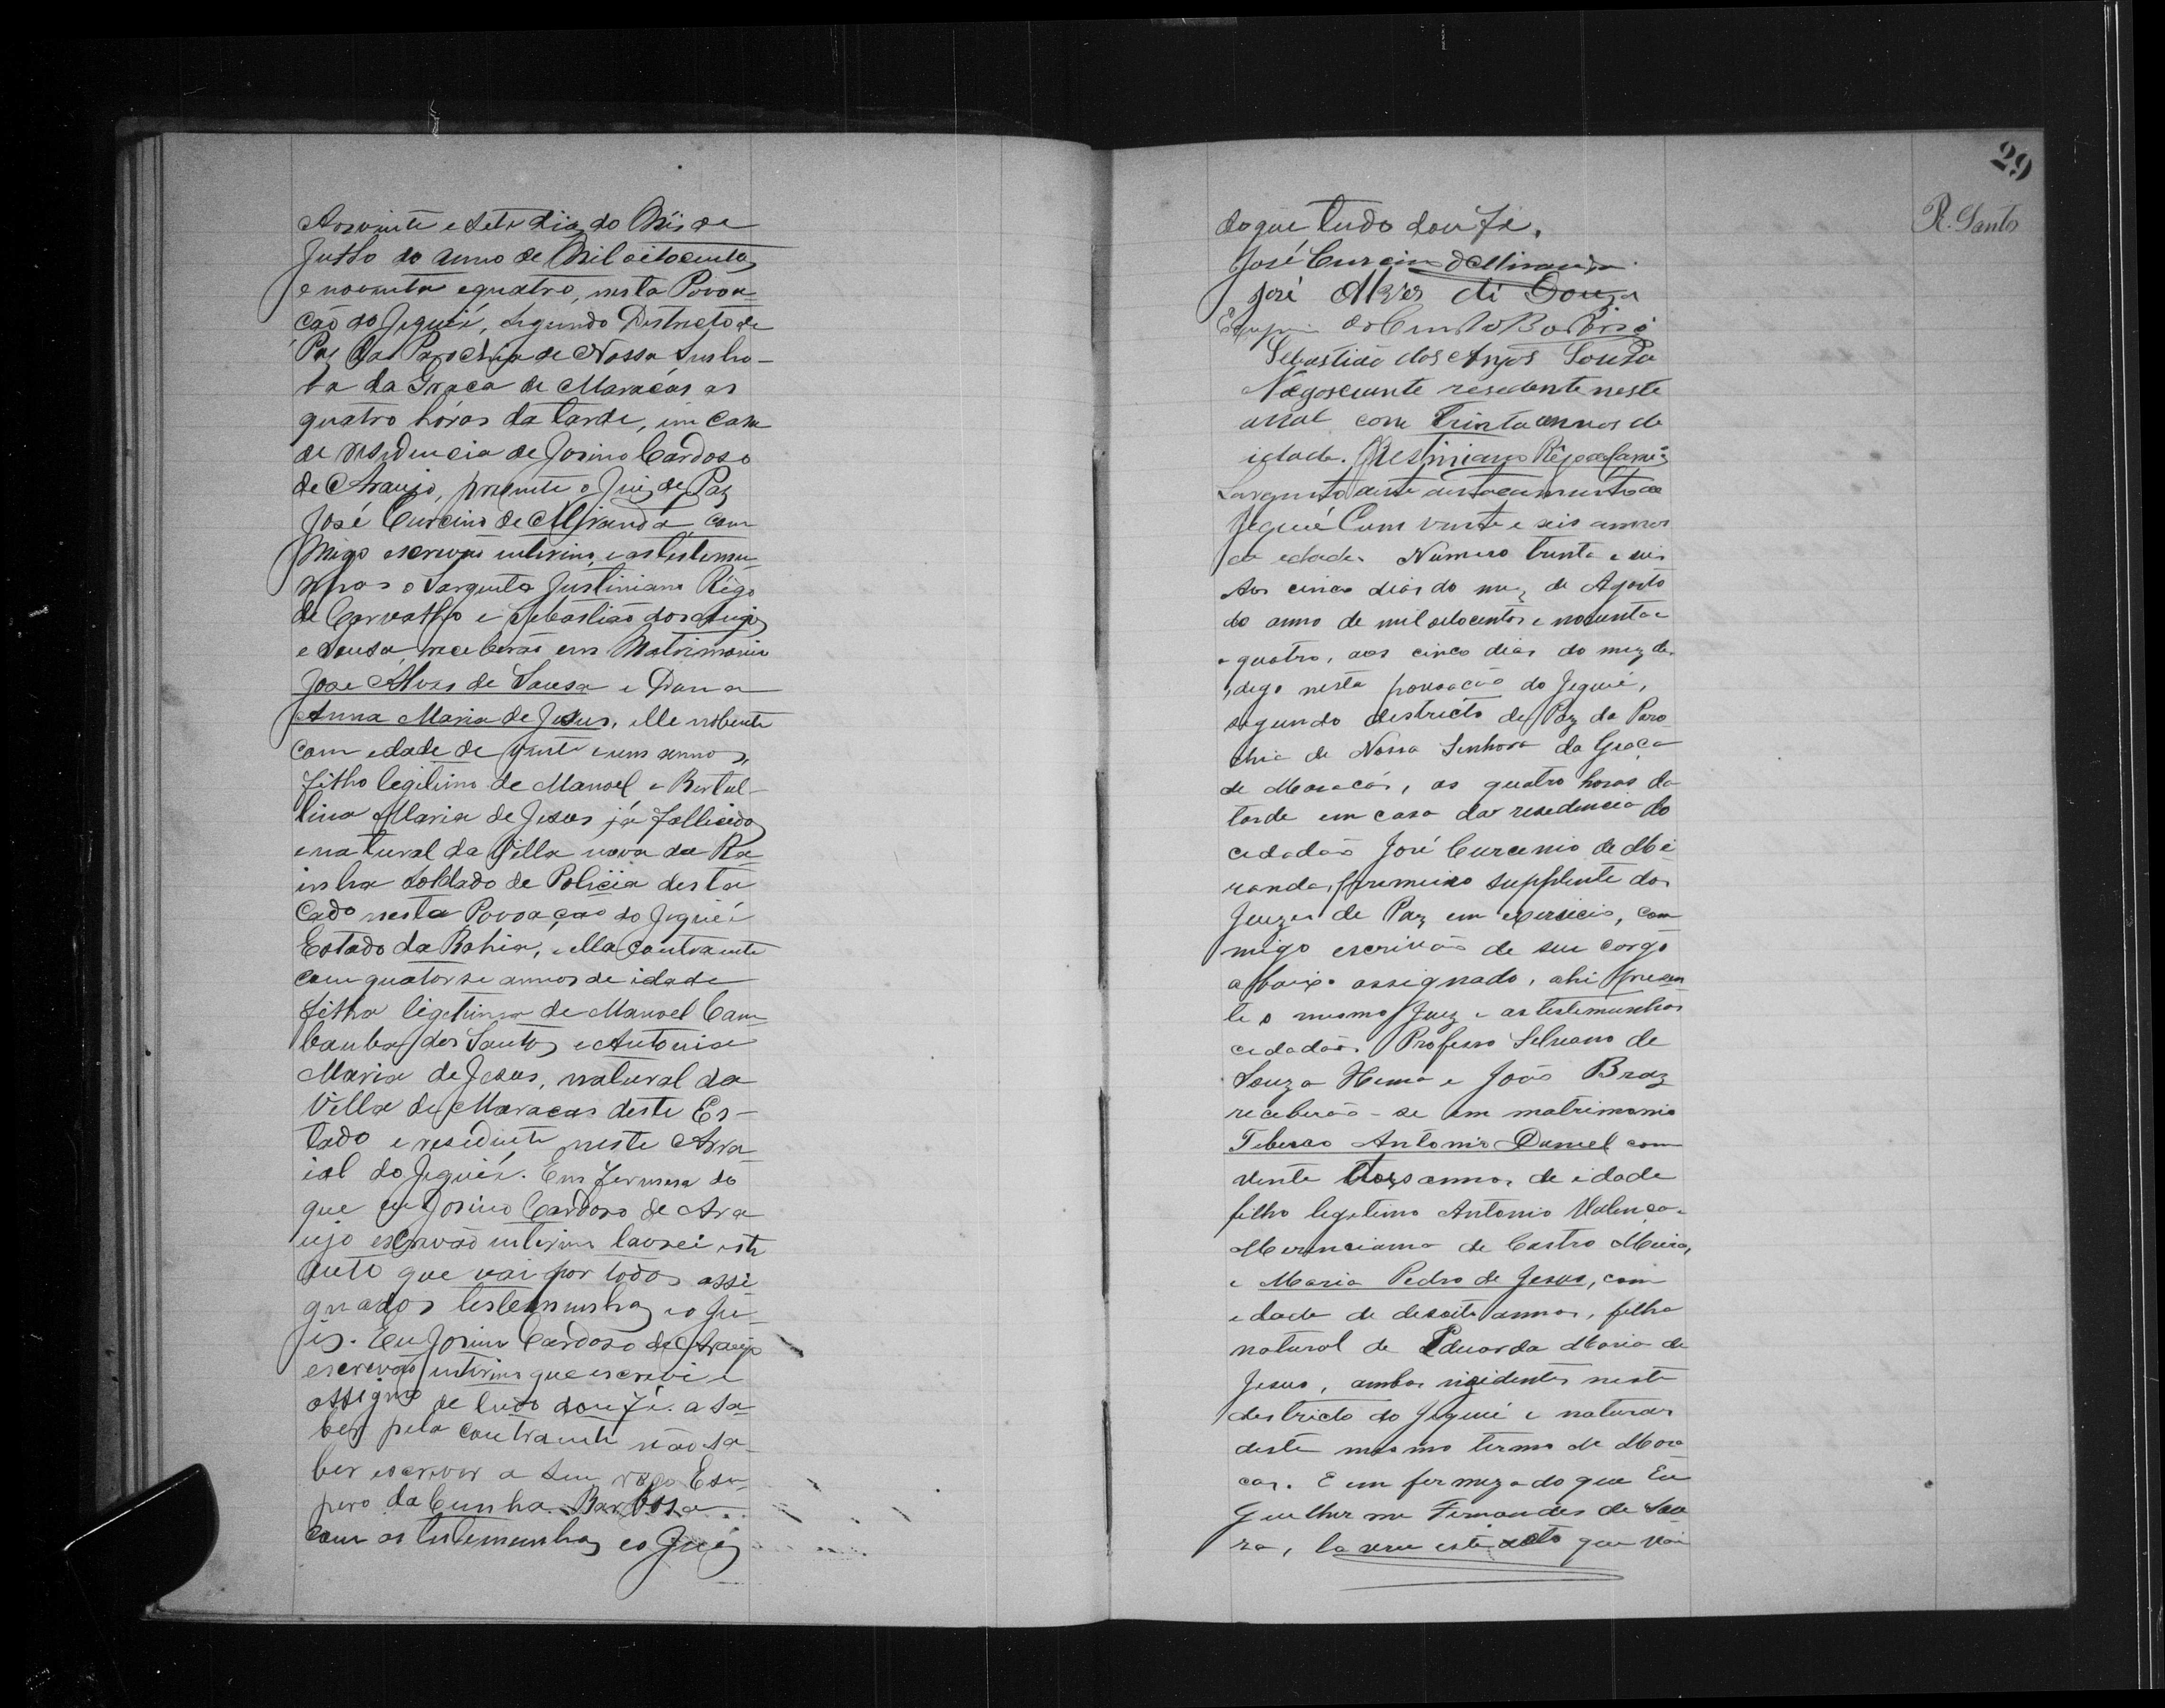 Aos vinte e sete dias do Mês de
Julho do anno de Mil oitocentos
e noventa e quatro, nesta Povoa-
ção do Jequié, segundo Districto de
Paz da Parochia de Nossa Senho-
ra da Graça de Maracás as
quatro hóras da tarde, em casa
de residencia de Josino Cardoso
de Araujo, presente o Juiz de Paz
José Curcino de Miranda, com
migo escrivão interino, e as testemu-
nhas o Sargento Justiniano Rêgo
de Carvalho e Sebastião dos Anjos
e Sousa, receberão em Matrimonio
José Alves de Sousa e Dona
Anna Maria de Jesus, elle
com edade de vinte e um annos,
filho legitimo de Manoel e Bertul-
lina Maria de Jesus já fallicidos
e natural da Villa nova da Ra-
inha Soldado de Policia desta
cado nesta Povoação do Jequié
Estado da Bahia, e ella contraente
com quatorse annos de idade
filha ligitima de Manoel Cam-
bauba dos Santos e Antonia
Maria de Jesus, natural da
Villa de Maracas deste Es-
tado e residente neste Arra-
ial do Jequié. Em firmesa do
que eu Josino Cardoso de Ara
ujo escrivão interino lavrei este
auto que vai por todos assi-
gnados testemunhas e o Ju-
is. Eu Josino Cardoso de Araujo
escrivão interino que escrevi e
assigno de tudo dou fé. a sa-
ber pela contraente não sa-
ber escrever a seu rogo Esu-
pero da Cunha Barbosa
com as testemunhas e o Juiz
29
R. Santos
do que tudo dou fé.
José Curcino de Miranda
José Alves di Souza
da Cunha Barbosa
Sebastião dos Anjos Souza
Negosciante residente neste
arial com Trinta annos de
idade. Justiniano Rêgo de Carv.º
Sargento deste destacamento de
Jequié Com vinte e seis annos
de edade. Numero trinta e seis
Aos cinco dias do mez de Agosto
do anno de mil oitocentos e noventa e
e quatro, aos cinco dias do mez de,
digo nesta povoação do Jequié,
segundo destricto de Paz da Paro
chia de Nossa Senhora da Graça
de Maracás, as quatro horas da
tarde em casa da residencia do
cidadão José Curcenio de Mi
randa, premeiro supplente dos
Juizes de Paz em exersicio, com
migo escrivão de seu cargo
abaixo assignado, ahi presen
te o mesmo Juiz e as testemunhas
cidadãos Professo Selvano de
Souza e João Braz
receberão-se em matrimonio
Teberao Antonio Daniel com
vente tres annos de idade
filho legitimo Antonio Valença e
de Castro Meira,
e Maria Pedro de Jesus, com
edade de desoito annos, filha
natural de Eduarda Maria de
Jesus, ambos rizidentes neste
destricto do Jequié e naturas
deste mesmo termo de Mara
cas. E em fermeza do que Eu
Guilherme Fernandes de Sea
ra, lavrei este acto que vai